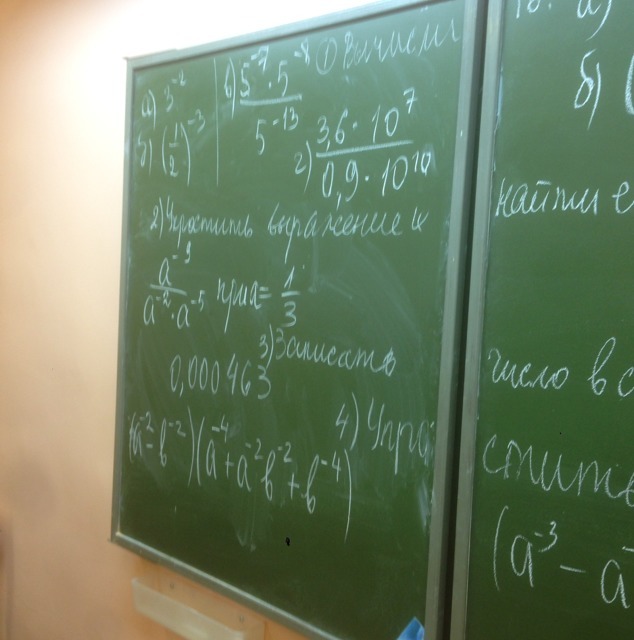 ① Вычисл
а) 3⁻²
б) (1/2)⁻³
в) 5⁻⁷ · 5⁻⁸ / 5⁻¹³
г) 3,6 · 10⁷ / 0,9 · 10¹⁰
2) Упростить выражение и
a⁻⁹ / a⁻² · a⁻⁵ при a = 1/3
3) Записать
0,000463
4) Упро
(a⁻² - b⁻²)(a⁻⁴ + a⁻² b⁻² + b⁻⁴)
а)
б) (
найти е
число в с
стить
(a⁻³ - a